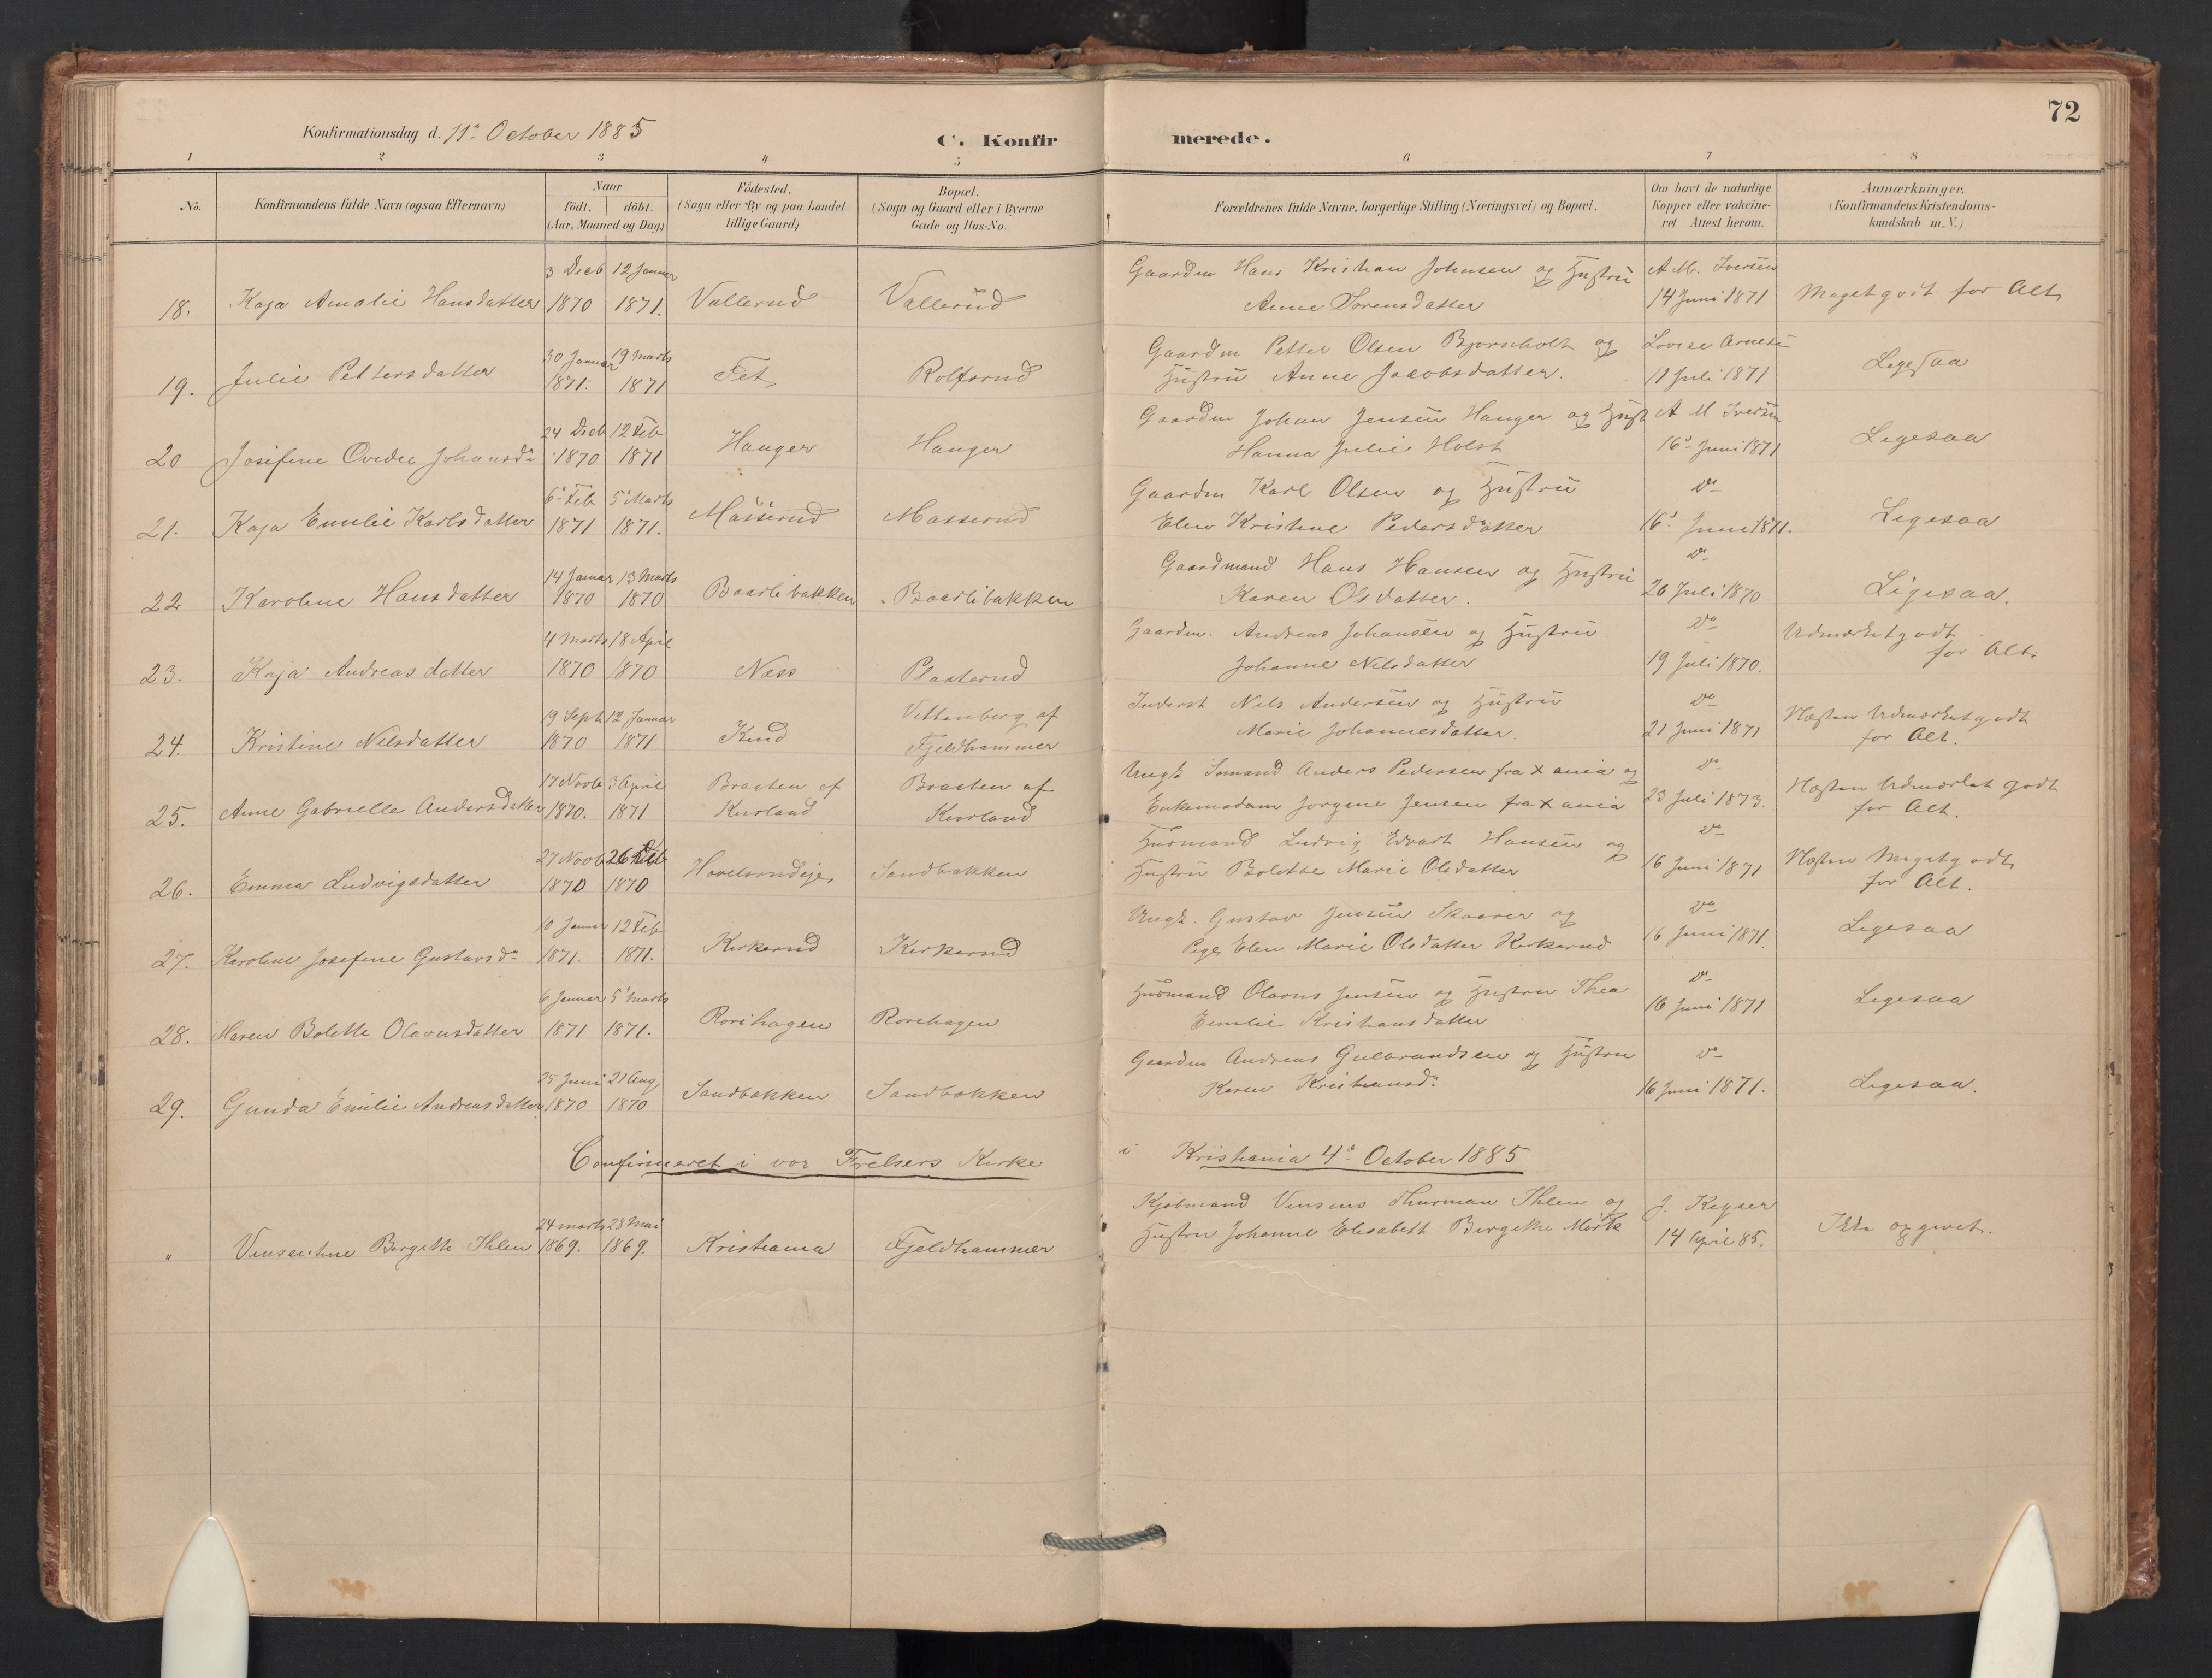 72
Konfirmationsdag d. 11te October 1885
C. Konfirmerede.
1 2 3 4 5 6 7 8
No.
Konfirmandens fulde Navn (ogsaa Efternavn)
Naar
födt. döbt.
(Aar, Maaned og Dag)
Födested.
(Sogn eller By og paa Landet
tillige Gaard)
Bopæl.
(Sogn og Gaard eller i Byerne
Gade og Hus-No.
Forældrenes fulde Navne, borgerlige Stilling (Næringsvei) og Bopæl.
Om havt de naturlige
Kopper eller vakcine-
ret Attest herom.
Anmærkninger.
(Konfirmandens Kristendoms-
kundskab m. V.)
3 Decb 12 Januar Gaardm Hans Kristian Johnsen og Hustru A M. Iversen
18. Kaja Amalie Hansdatter 1870 1871. Vallerud Vallerud Anne Sorensdatter 14 Juni 1871 Megetgodt for Alt
30 Januar 19 Marts Gaardm Petter Olsen Bjornholt og Lovise Arnesen
19. Julie Pettersdatter 1871. 1871 Fet Rolfsrud Hustru Anne Jacobsdatter. 11 Juli 1871 Ligesaa
24 Decb 12 Feb Gaardm Johan Jensen Hauger og Hust A M Iversen
20 Josefine Ovedee Johansdr 1870 1871 Hauger Hauger Hanna Julie Holst 16d Juni 1871 Ligesaa
6d Feb 5d Marts Gaardm Karl Olsen og Hustru Do
21. Kaja Emilie Karlsdatter 1871 1871. Masserud Masserud Elen Kristine Pedersdatter 16d Juni 1871. Ligesaa
14 Januar 13 Marts Gaardmand Hans Hansen og Hustru Do
22 Karoline Hansdatter 1870 1870 Baarlibakken Baarlibakken Karen Olsdatter. 26 Juli 1870 Ligesaa.
4 Marts 18 April Gaardm. Andreas Johansen og Hustru Do Udmærketgodt
23. Kaja Andreasdatter 1870 1870 Næss Plaaterud Johanne Nilsdatter 19 Juli 1870. for Alt
19 Sept 12 Januar Vittenberg af Inderst Nils Andersen og Hustru Do Næsten Udmærketgodt
24. Kristine Nilsdatter 1870 1871 Kind Fjeldhammer Marie Johannesdatter. 21 Juni 1871 for Alt.
17 Novb 3 April Braaten af Braaten af Ungk Somand Anders Pedersen fra Xania og Do Næsten Udmærket godt
25. Anne Gabrielle Andersdatter 1870. 1871 Kurland Kurland Enkemadam Jorgine Jensen fra Xania 23 Juli 1873. for Alt.
27 Novb 26 Feb Husmand Ludvig Edvart Hansen og Do Næsten Megetgodt
26. Emma Ludvigsdatter 1870 1870 Hovelsrudeje Sandbakken Hustru Bolette Marie Olsdatter 16 Juni 1871 for Alt.
10 Januar 12 Feb Ungk. Gustav Jensen Skaarer og Do
27. Karoline Josefine Gustavsdr 1871. 1871. Kirkerud Kirkerud Pige Elen Marie Olsdatter Kirkerud 16 Juni 1871. Ligesaa
6 Januar 5d Marts Husmand Olavus Jensen og Hustru Thea Do
28. Maren Bolette Olavusdatter 1871 1871. Rorihagen Rorihagen Emilie Kristiansdatter 16 Juni 1871 Ligesaa
25 Juni 21 Aug Gaardm Andreas Gulbrandsen og Hustru Do
29. Gunda Emilie Andreasdatter 1870 1870 Sandbakken Sandbakken Karen Kristiansdr. 16 Juni 1871. Ligesaa.
Confirmeret i vor Frelsers Kirke i Kristiania 4de October 1885
24 marts 28 Mai Kjobmand Vensens Thurman Ihlen og J. Keyser
" Vensentine Bergette Ihlen 1869. 1869. Kristiania Fjeldhammer Hustru Johanne Elisabeth Bergette Mørk 14 April 85. Ikke opgivet.